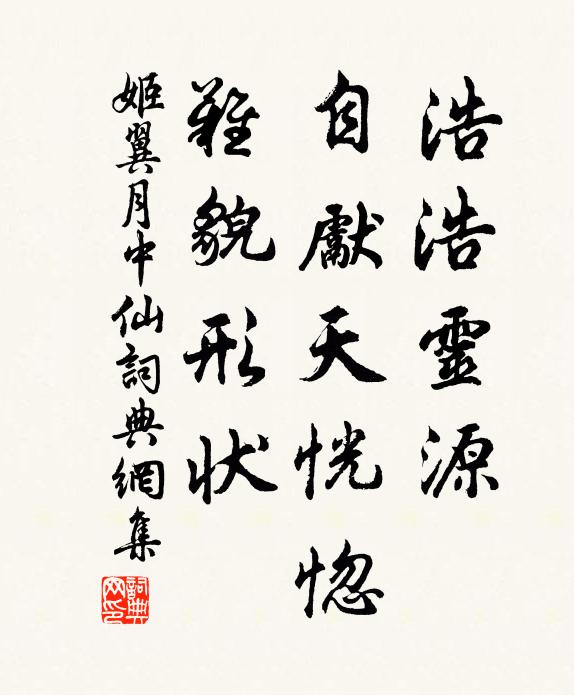 浩浩靈源
自獻天恍惚
難貌形狀
姬翼月中仙詞典網集
詞典网印